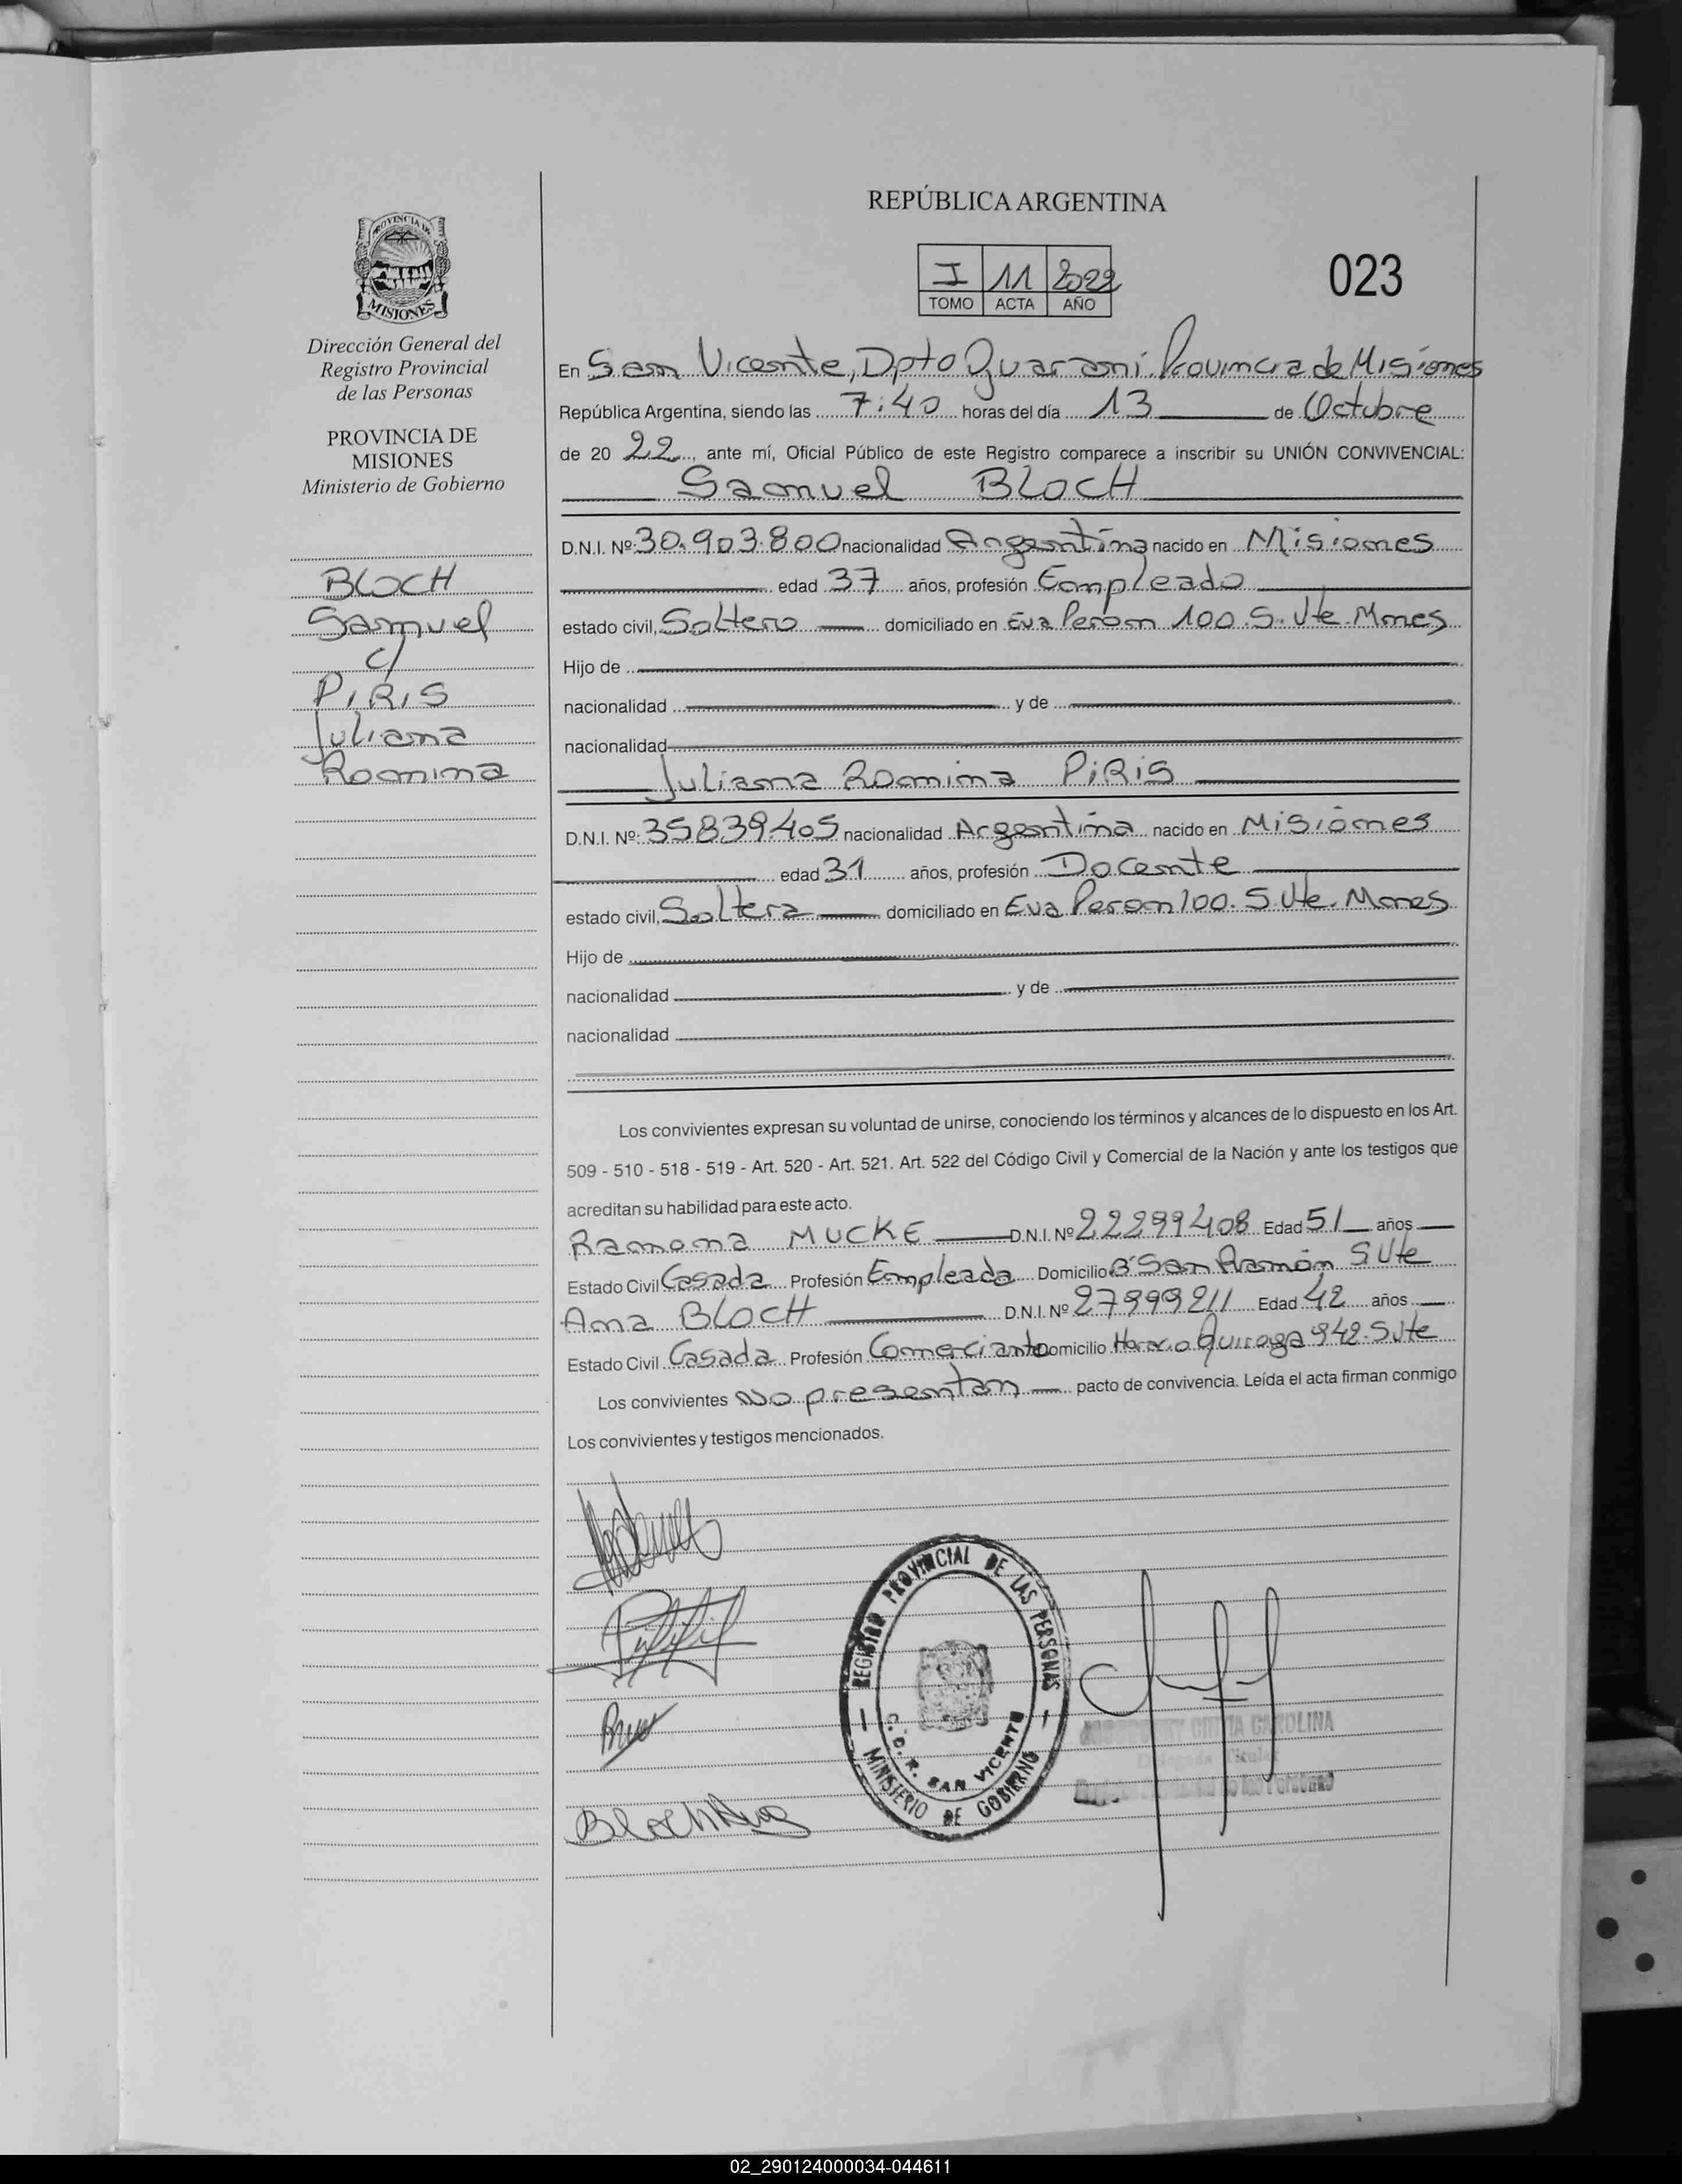 REPÚBLICA ARGENTINA
I 11 2022
TOMO ACTA AÑO
023
PROVINCIA DE
MISIONES
Dirección General del
Registro Provincial
de las Personas
PROVINCIA DE
MISIONES
Ministerio de Gobierno
BLOCH
Samuel
c/
PIRIS
Juliana
Romina
En San Vicente, Dpto Guaraní. Provincia de Misiones
República Argentina, siendo las 7:40 horas del día 13 de Octubre
de 20 22, ante mí, Oficial Público de este Registro comparece a inscribir su UNIÓN CONVIVENCIAL:
Samuel BLOCH
D.N.I. Nº: 30.903.800 nacionalidad Argentina nacido en Misiones
edad 37 años, profesión Empleado
estado civil, Soltero domiciliado en Eva Peron 100. S. Vte. Mnes
Hijo de
nacionalidad y de
nacionalidad
Juliana Romina PIRIS
D.N.I. Nº: 35839405 nacionalidad Argentina nacido en Misiones
edad 31 años, profesión Docente
estado civil, Soltera domiciliado en Eva Peron 100. S. Vte. Mnes
Hijo de
nacionalidad y de
nacionalidad
Los convivientes expresan su voluntad de unirse, conociendo los términos y alcances de lo dispuesto en los Art.
509 - 510 - 518 - 519 - Art. 520 - Art. 521. Art. 522 del Código Civil y Comercial de la Nación y ante los testigos que
acreditan su habilidad para este acto.
Ramona MUCKE D.N.I. Nº 22299408 Edad 51 años
Estado Civil Casada Profesión Empleada Domicilio Bº San Ramón S Vte
Ana BLOCH D.N.I. Nº 27999211 Edad 42 años
Estado Civil Casada Profesión Comerciante Domicilio Horacio Quiroga 942. S Vte
Los convivientes No presentan pacto de convivencia. Leída el acta firman conmigo
Los convivientes y testigos mencionados.
Bloch Ana
REGISTRO PROVINCIAL DE LAS PERSONAS
C.D.R. SAN VICENTE
MINISTERIO DE GOBIERNO
CAROLINA
Delegada Titular
de las Personas
02_290124000034-044611